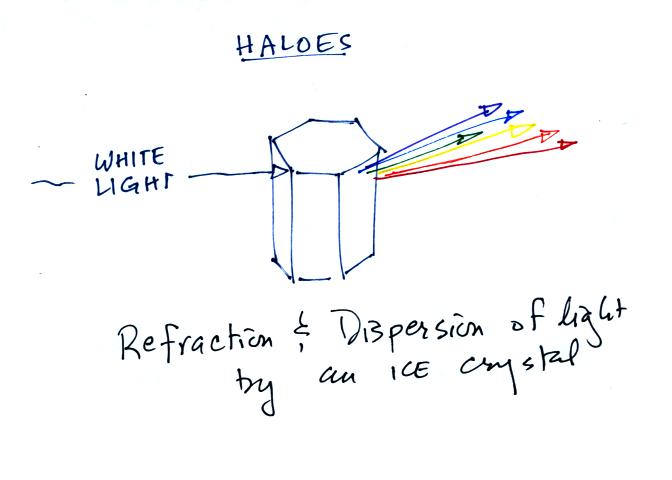 HALOES
WHITE
LIGHT
Refraction & Dispersion of light
by an ICE crystal